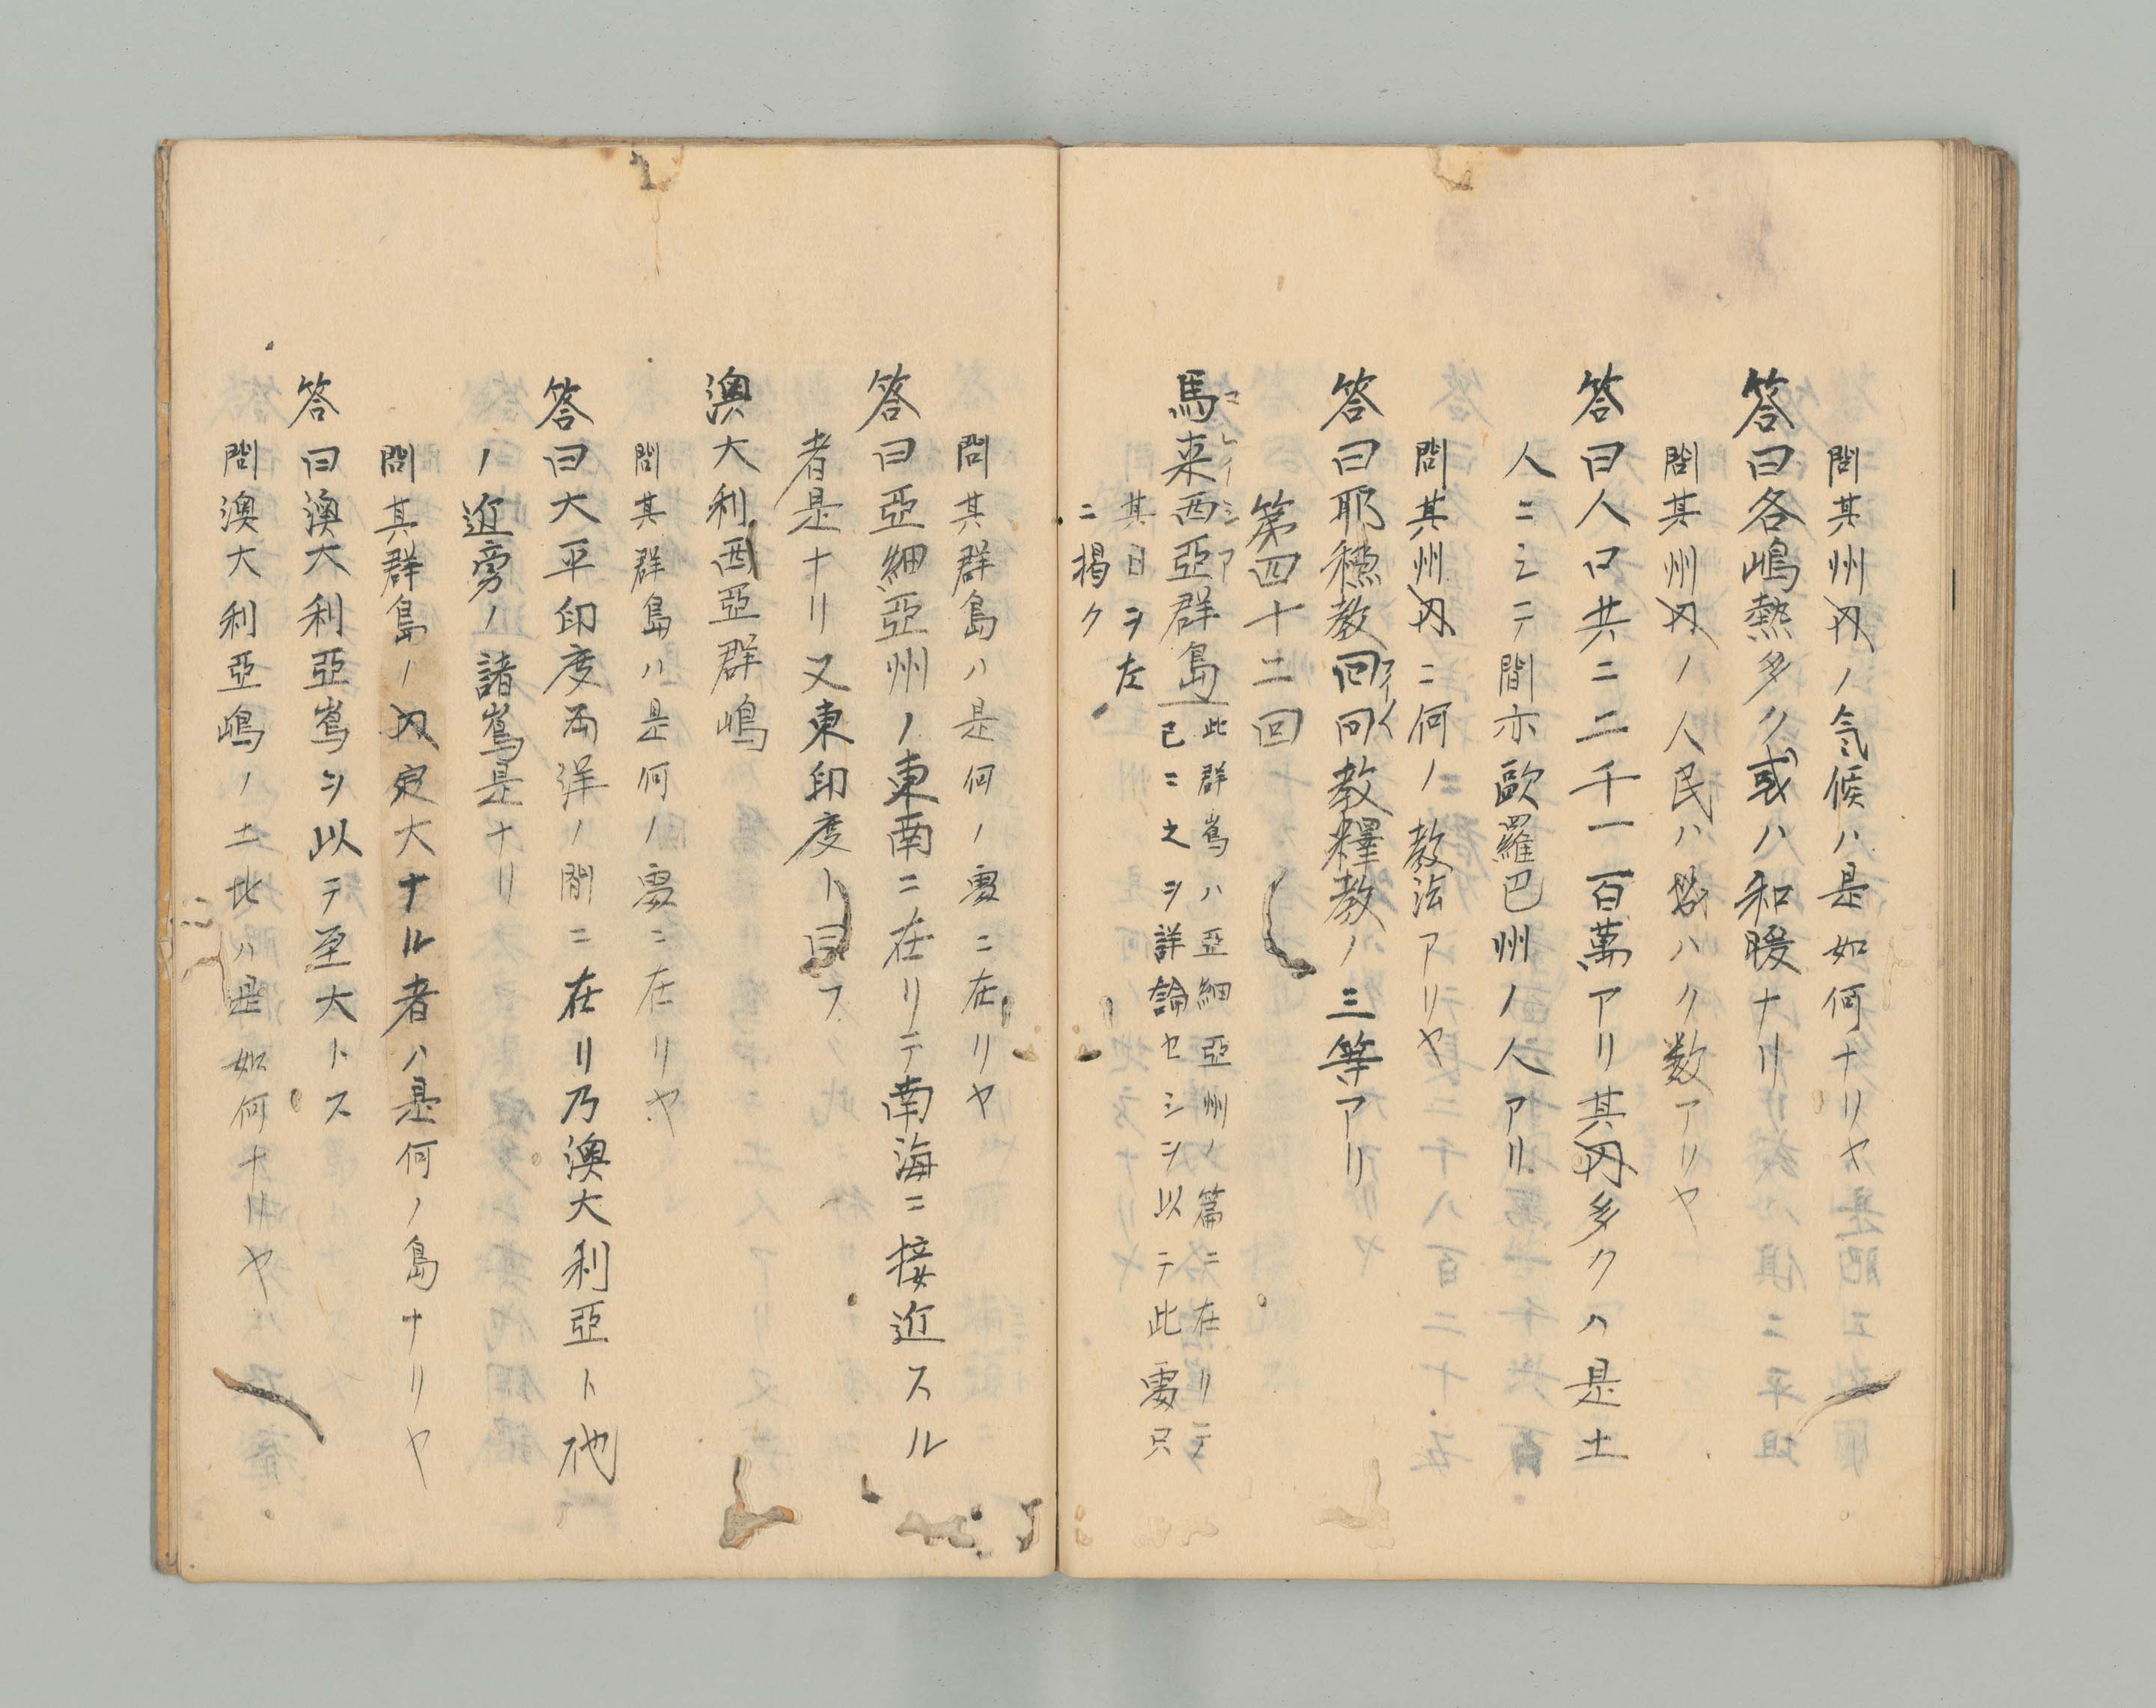 問其州内ノ気候ハ是如何ナリヤ
答曰各嶋熱多ク或ハ和暖ナリ
問其州内ノ人民ハ幾ハク数アリヤ
答曰人口共ニ二千一百萬アリ其内多クハ是土
人ニシテ間亦歐羅巴州ノ人アリ
問其州内ニ何ノ教法アリヤ
答曰耶穌教回回教釋教ノ三等アリ
第四十二回
馬来西亞群島
マレイシア
此群嶌ハ亞細亞州ノ篇ニ在リテ
已ニ之ヲ詳論セシヲ以テ此處只
其目ヲ左
ニ掲ク
問其群島ハ是何ノ處ニ在リヤ
答曰亞細亞州ノ東南ニ在リテ南海ニ接近スル
者是ナリ又東印度ト曰フ
澳大利西亞群嶋
問其群島ハ是何ノ處ニ在リヤ
答曰大平印度両洋ノ間ニ在リ乃澳大利亞ト他
ノ近旁ノ諸嶌是ナリ
問其群島ノ内㝡大ナル者ハ是何ノ島ナリヤ
答曰澳大利亞嶌ヲ以テ至大トス
問澳大利亞嶋ノ土地ハ是如何ナリヤ